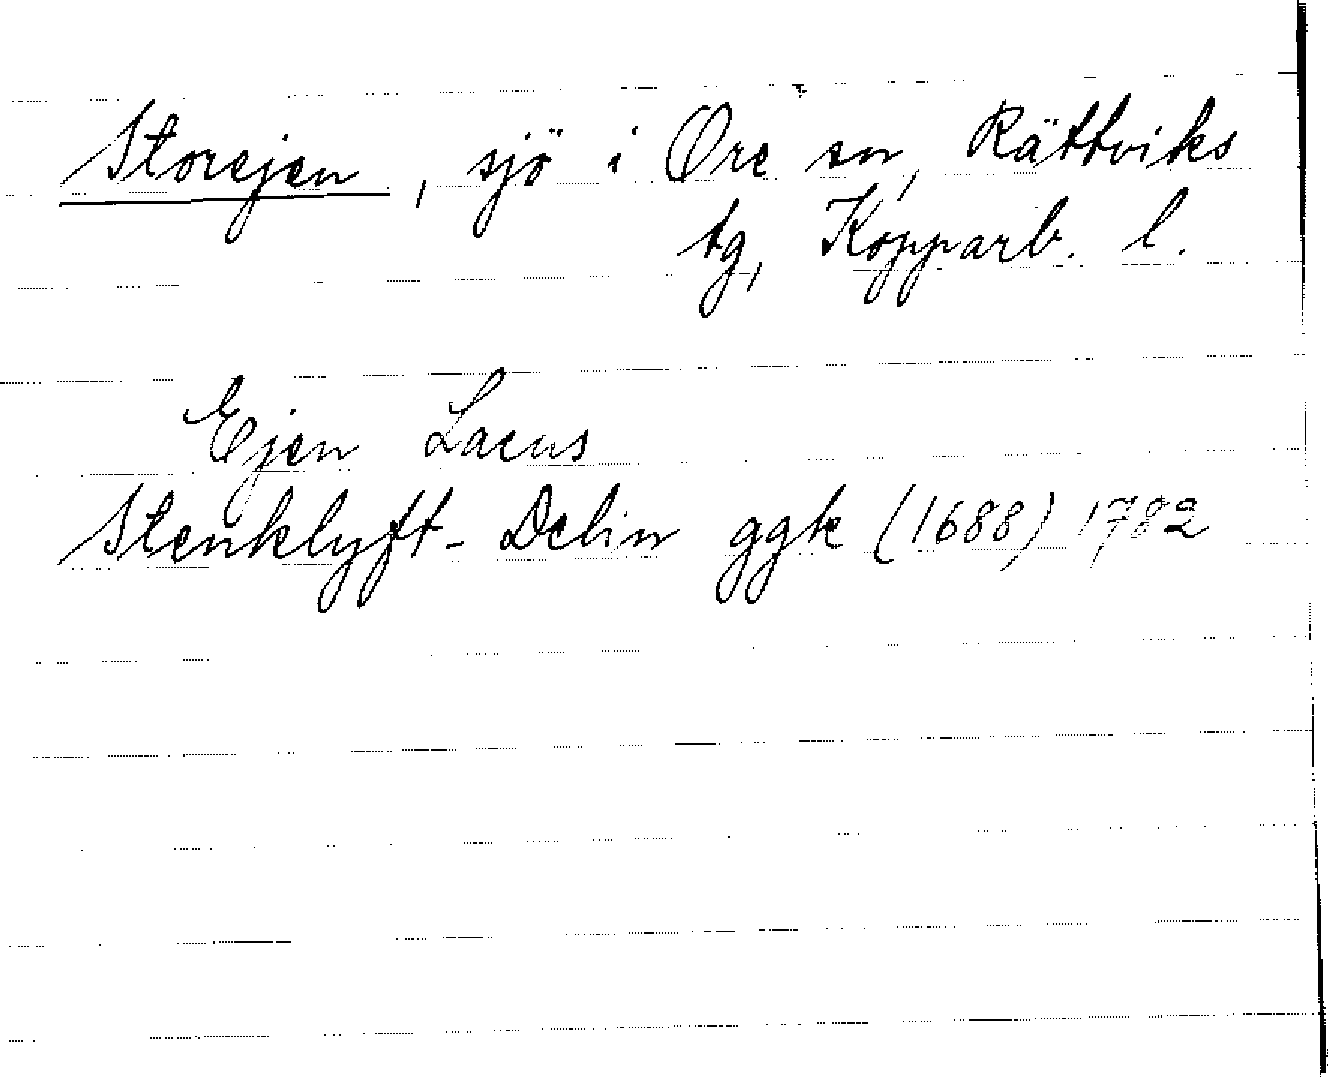 Storejen, sjö i Ore sn, Rättviks
tg, Kopparb. l.
Ejen Lacus
Stenklyft-Delin ggk (1688) 1782